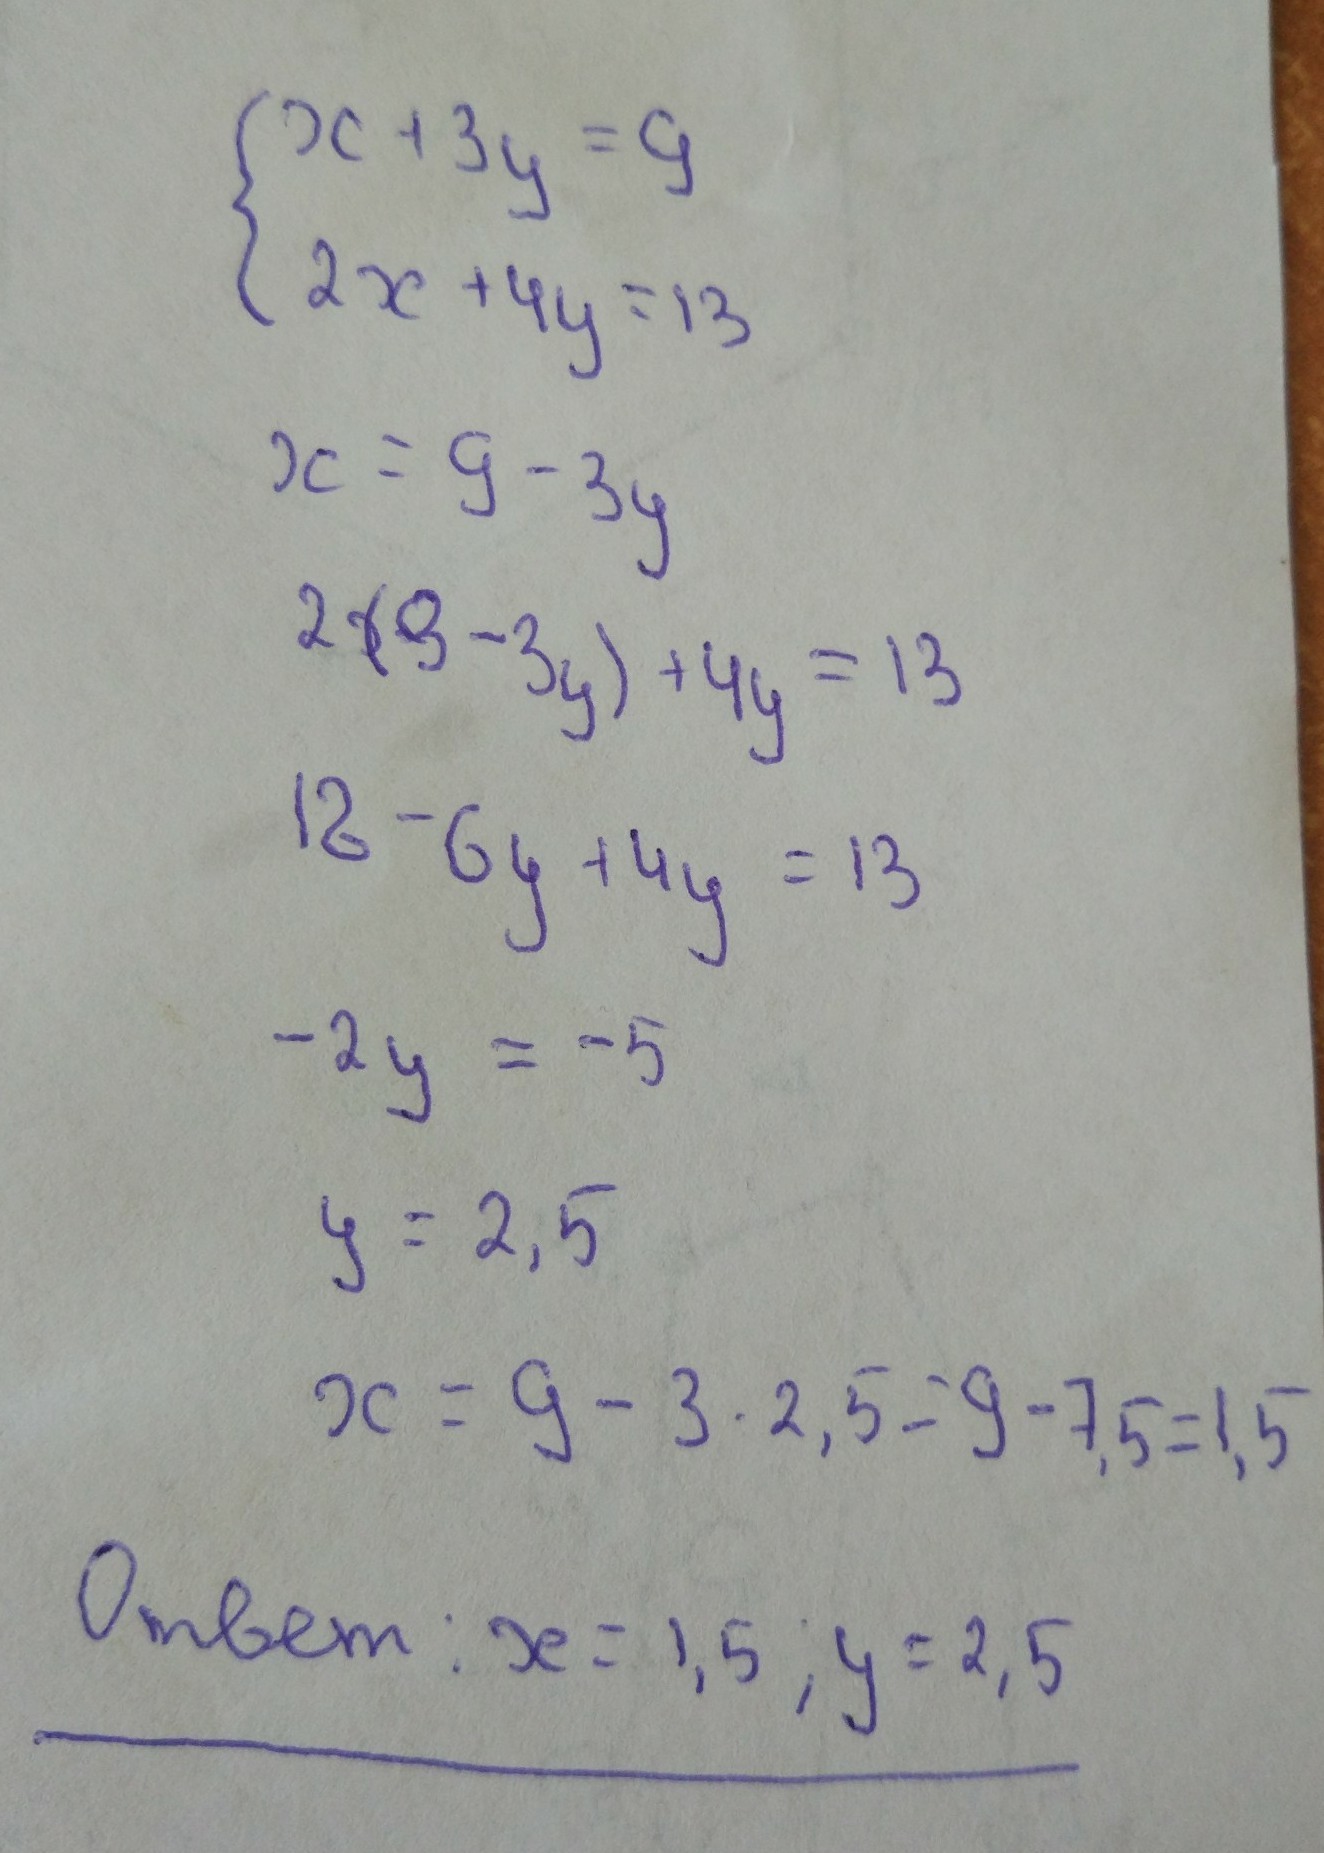 { x + 3y = 9
2x + 4y = 13
x = 9 - 3y
2(9 - 3y) + 4y = 13
18 - 6y + 4y = 13
-2y = -5
y = 2,5
x = 9 - 3 · 2,5 = 9 - 7,5 = 1,5
Ответ: x = 1,5; y = 2,5